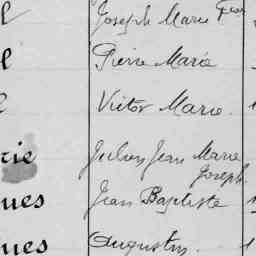 l Joseph Marie
l Pierre Marie
l Victor Marie.
rie Julien Jean Marie
Joseph
ues Jean Baptiste
ues Augustin.